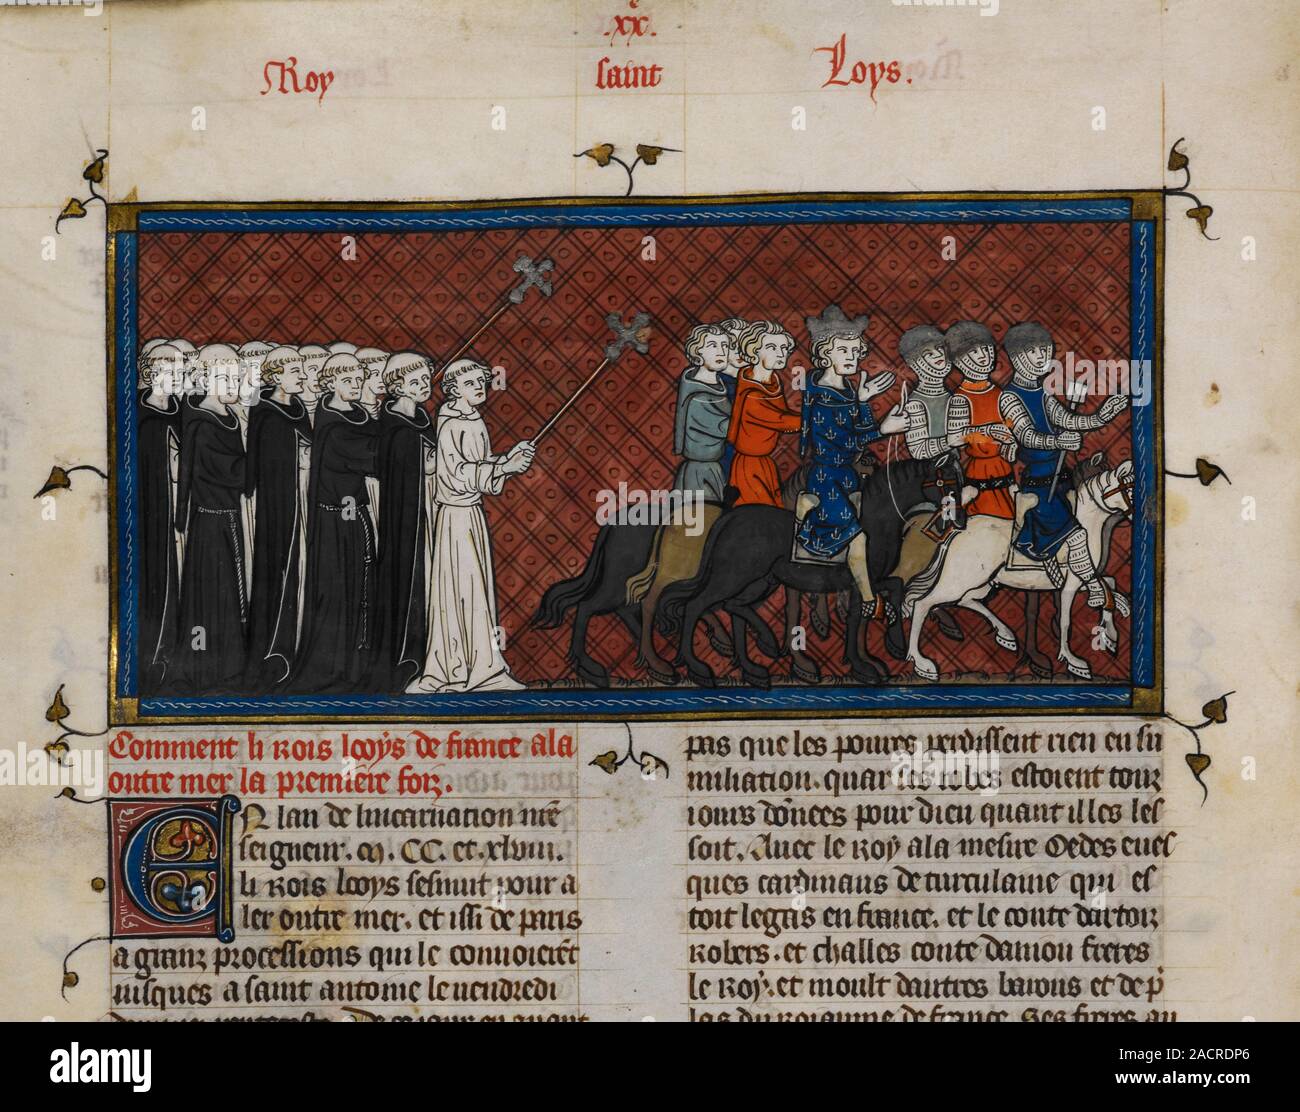 .xx.e
Roy saint Loys.
Comment li rois looys de france ala
outre mer la premiere foiz.
En lan de lincarnation nre
seigneur. m. CC. et. xlviii.
li rois looys sesmut pour a
ler outre mer. et issi de paris
a granz processions qui le convoierent
jusques a saint antoine le vendredi
pas que les poures perdissent rien en su
miliation. quar les robes estoient touz
iours donees pour dieu quant il les les
soit. Avec le roy ala mesire Oedes eves
ques cardinaus de turculane qui es
toit legas en france. et le conte dartoiz
Robers. et challes conte daniou freres
le Roy. et moult dautres barons et de p
las du roiaume de france. Ses freres au
alamy
Image ID: 2ACRDP6
www.alamy.com